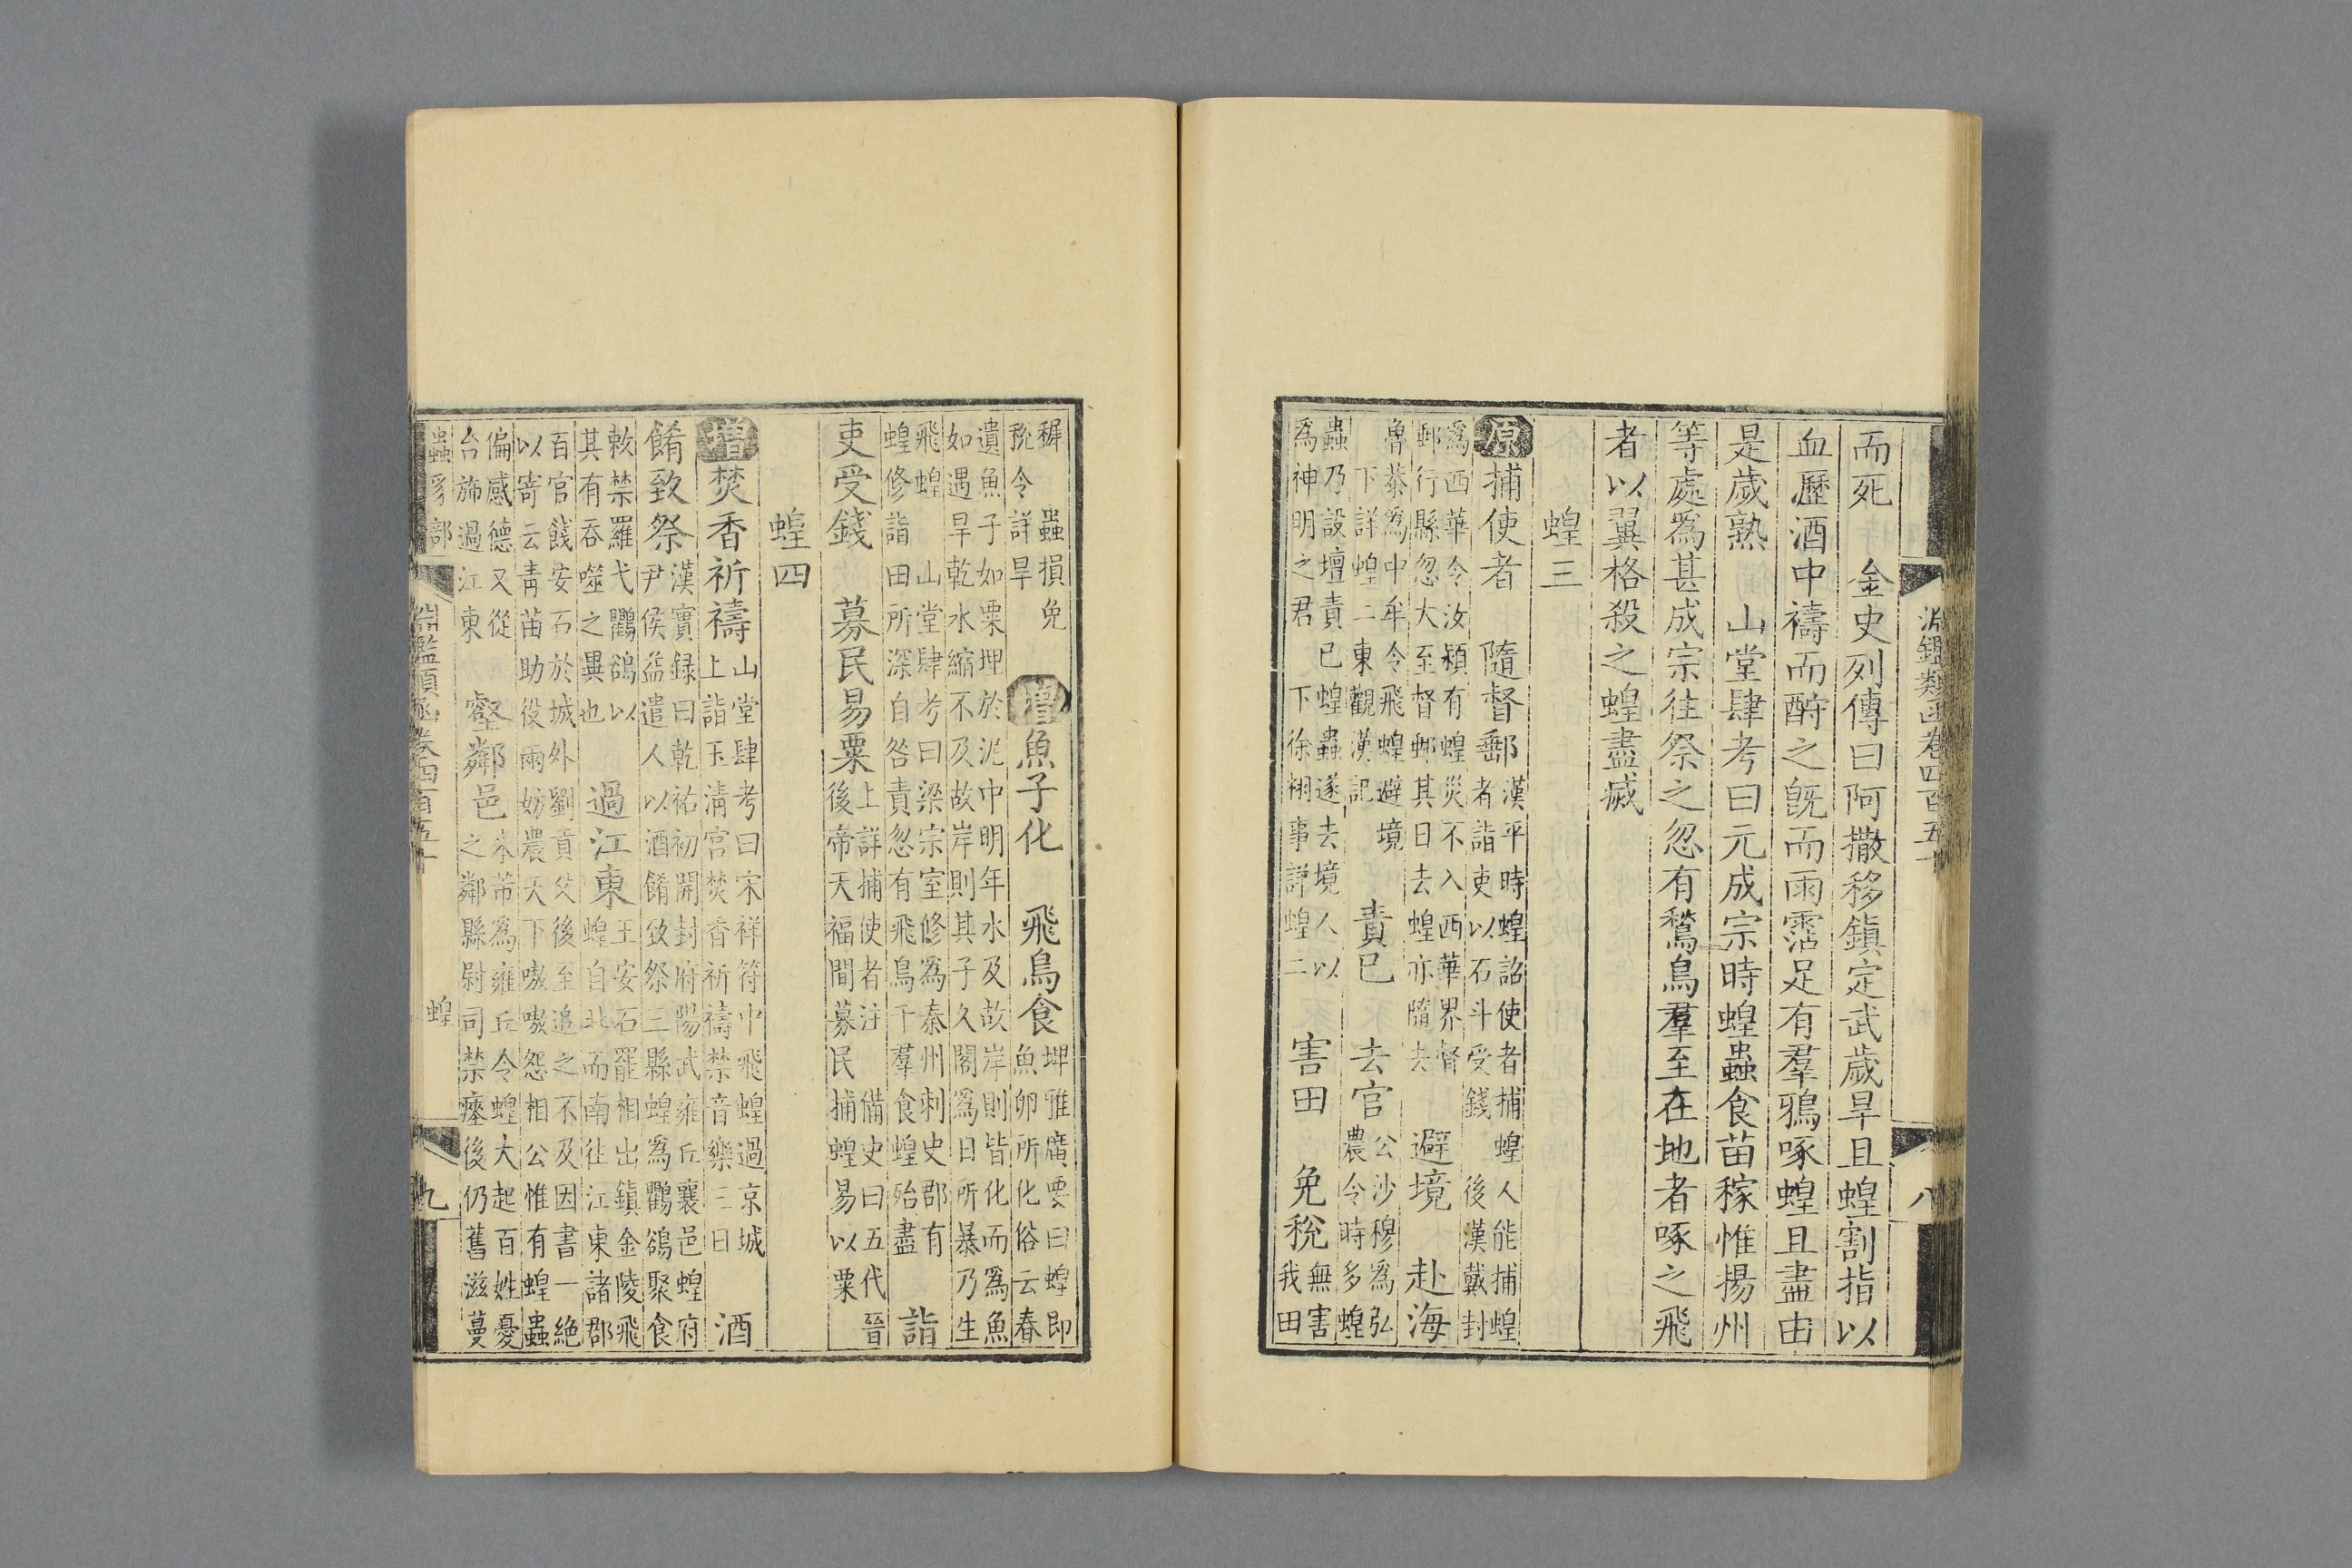 淵鑑類函卷四百五十
八
而死　金史列傳曰阿撒移鎮定武歲旱且蝗割指以
血瀝酒中禱而酹之旣而雨霑足有羣鴉啄蝗且盡由
是歲熟　山堂肆考曰元成宗時蝗蟲食苗稼惟揚州
等處爲甚成宗往祭之忽有鶖鳥羣至在地者啄之飛
者以翼格殺之蝗盡滅
蝗三
原捕使者　隨督郵
漢平時蝗詔使者捕蝗人能捕蝗
者詣吏以石斗受錢　後漢戴封
爲西華令汝潁有蝗災不入西華界督
郵行縣忽大至督郵其日去蝗亦隨去
避境　赴海
魯恭爲中牟令飛蝗避境
下詳蝗二東觀漢記
責巳　去官
公沙穆爲弘
農令時多蝗
蟲乃設壇責已蝗蟲遂去境人以
爲神明之君　下徐栩事詳蝗二
害田　免稅
無害
我田
穉　蟲損免
稅令詳旱
增魚子化　飛鳥食
埤雅廣要曰蝗即
魚卵所化俗云春
遺魚子如粟埋於泥中明年水及故岸則皆化而爲魚
如遇旱乾水縮不及故岸則其子久閣爲日所暴乃生
飛蝗　山堂肆考曰梁宗室修爲秦州刺史郡有
蝗修詣田所深自咎責忽有飛鳥千羣食蝗殆盡
詣
吏受錢　募民易粟
上詳捕使者注　備史曰五代晉
後帝天福間募民捕蝗易以粟
蝗四
增焚香祈禱
山堂肆考曰宋祥符中飛蝗過京城
上詣玉淸宮焚香祈禱禁音樂三日
酒
餚致祭
漢實録曰乾祐初開封府陽武雍丘襄邑蝗府
尹侯益遣人以酒餚致祭三縣蝗爲鸜鵒聚食
敕禁羅弋鸜鵒以
其有吞噬之異也
過江東
王安石罷相出鎮金陵飛
蝗自北而南往江東諸郡
百官餞安石於城外劉貢父後至追之不及因書一絶
以寄云靑苗助役雨妨農天下嗷嗷怨相公惟有蝗蟲
偏感德又從
台旆過江東
壑鄰邑
米芾爲雍丘令蝗大起百姓憂
之鄰縣尉司禁瘞後仍舊滋蔓
蟲豸部
淵鑑類函卷四百五十
蝗
九